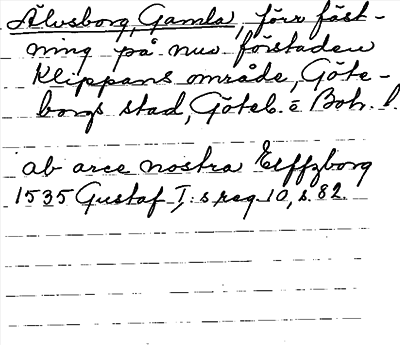 Älvsborg, Gamla, förr fäst-
ning på nuv förstaden
Klippans område, Göte-
borgs stad, Göteb. o Boh. l.
ab arce nostra Elffzborg
1535 Gustaf I:s reg 10, s. 82.